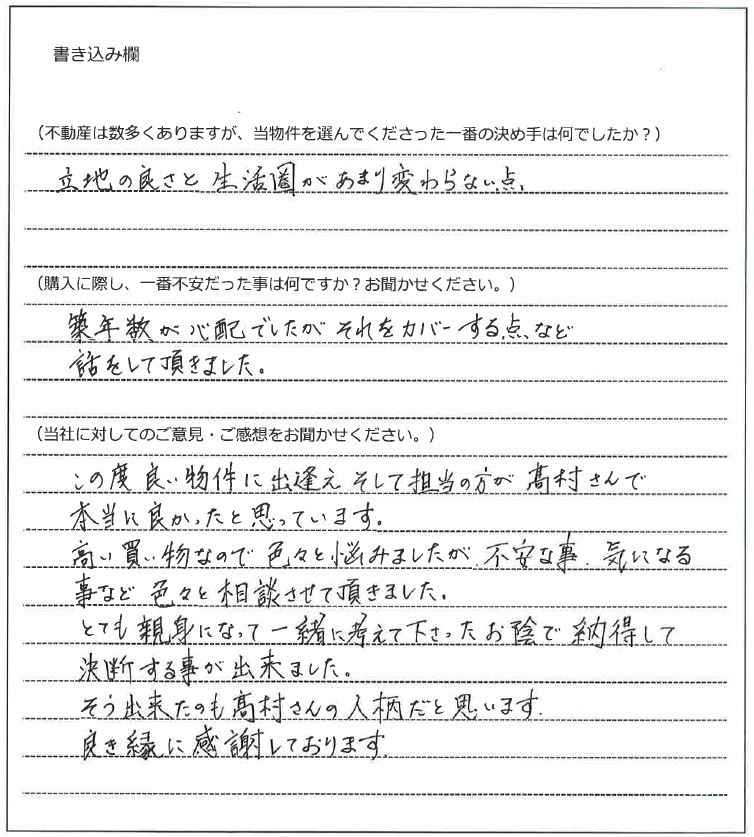 書き込み欄
(不動産は数多くありますが、当物件を選んでくださった一番の決め手は何でしたか?)
立地の良さと 生活圏があまり変わらない点、
(購入に際し、一番不安だった事は何ですか?お聞かせください。)
築年数が心配でしたが それをカバーする点、など
話をして頂きました。
(当社に対してのご意見・ご感想をお聞かせください。)
この度 良い物件に出逢え そして担当の方が 髙村さんで
本当に良かったと思っています。
高い買い物なので 色々と悩みましたが、不安な事、気になる
事など 色々と相談させて頂きました。
とても親身になって一緒に考えて下さったお陰で 納得して
決断する事が出来ました。
そう出来たのも髙村さんの人柄だと思います.
良き縁に感謝しております.